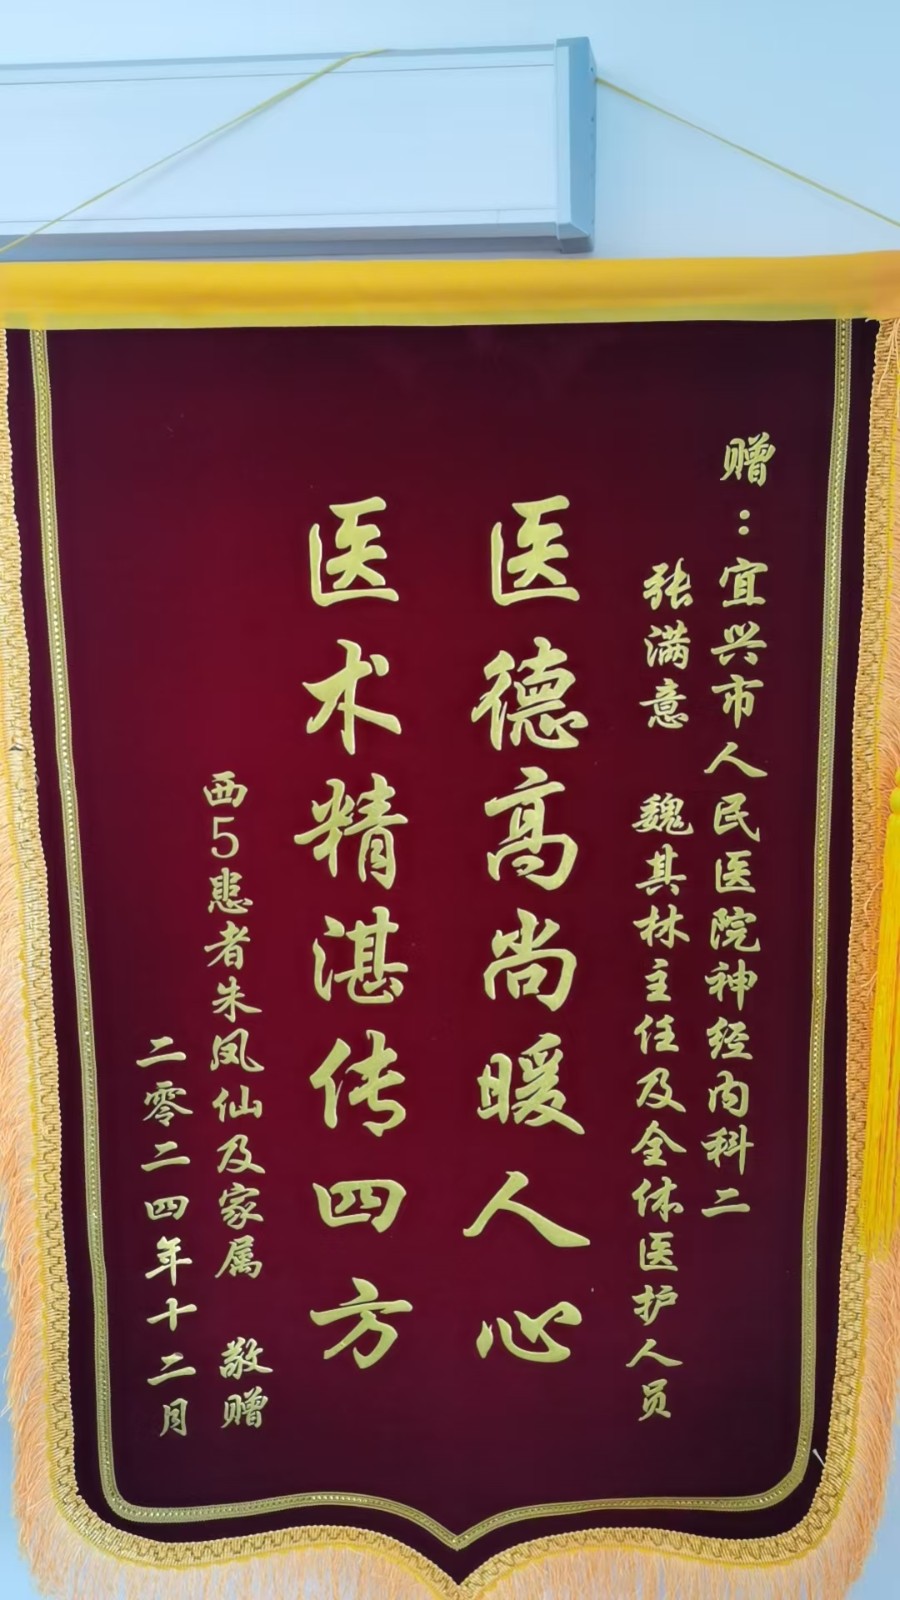 赠：宜兴市人民医院神经内科二
张满意 魏其林主任及全体医护人员
医德高尚暖人心
医术精湛传四方
西5患者朱凤仙及家属 敬赠
二零二四年十二月